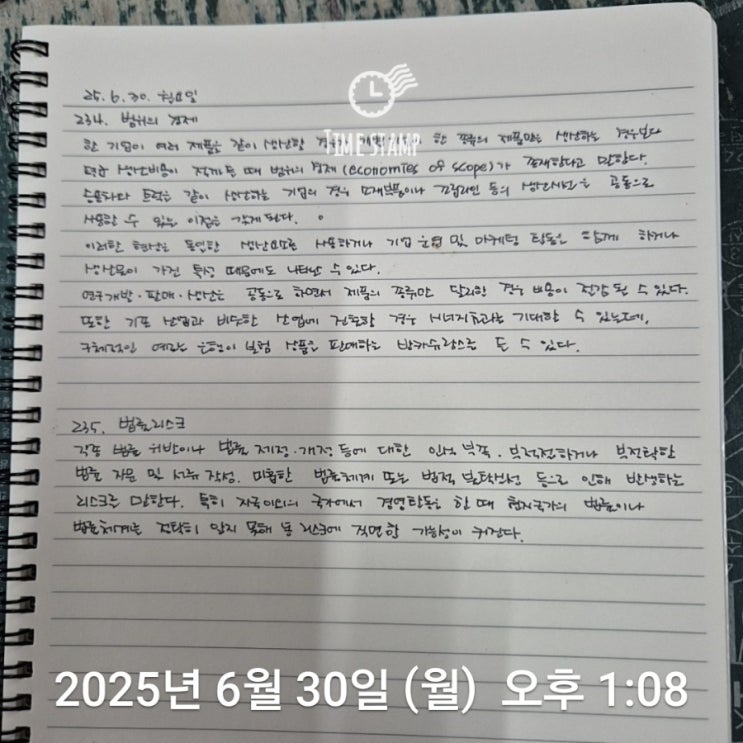 25. 6. 30. 월요일
234. 범위의 경제
한 기업이 여러 제품을 같이 생산할 경우 한 종류의 제품만 생산하는 경우보다
평균 생산비용이 적게 들 때 범위의 경제(economies of scope)가 존재한다고 말한다.
승용차와 트럭을 같이 생산하는 기업의 경우 소재부품이나 조립라인 등의 생산시설을 공동으로
사용할 수 있는 이점을 갖게 된다.
이러한 현상은 동일한 생산요소를 사용하거나 기업 운영 및 마케팅 활동을 함께 하거나
생산물이 가진 특성 때문에도 나타날 수 있다.
연구개발·판매·생산은 공동으로 하면서 제품의 종류만 달리할 경우 비용이 절감 될 수 있다.
또한 기존 산업과 비슷한 산업에 진출할 경우 시너지효과를 기대할 수 있는데,
구체적인 예로는 은행이 보험 상품을 판매하는 방카슈랑스를 들 수 있다.
235. 법률리스크
각종 법률 위반이나 법률 제정·개정 등에 대한 인식 부족. 부적절하거나 부정확한
법률 자문 및 서류 작성. 미흡한 법률체계 또는 법적 불확실성 등으로 인해 발생하는
리스크를 말한다. 특히 자국이외의 국가에서 경영활동을 할 때 현지국가의 법률이나
법률체계를 정확히 알지 못해 동 리스크에 직면할 가능성이 커진다.
TIMESTAMP
2025년 6월 30일 (월) 오후 1:08